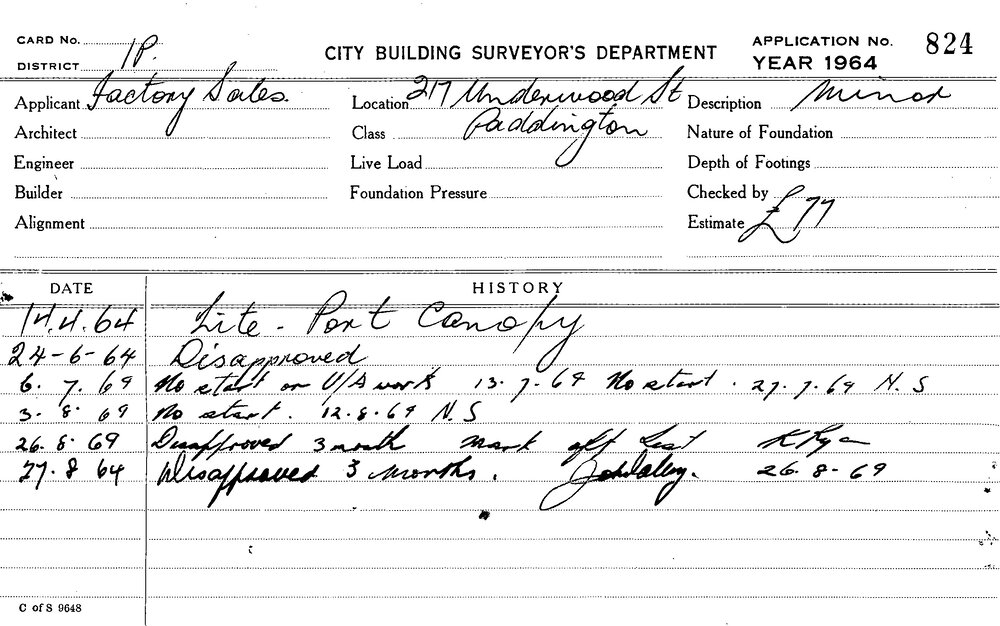 CARD No. 1P.
DISTRICT
CITY BUILDING SURVEYOR'S DEPARTMENT
APPLICATION No. 824
YEAR 1964
Applicant Factory Sales.
Location 217 Underwood St
Description Minor
Architect
Class Paddington
Nature of Foundation
Engineer
Live Load
Depth of Footings
Builder
Foundation Pressure
Checked by
Alignment
Estimate £77
DATE HISTORY
14.4.64 Lite-Port Canopy
24-6-64 Disapproved
6. 7. 69 No start on U/A work 13.7.69 No start. 27.7.69 N.S
3. 8. 69 No start. 12.8.69 N.S
26.8.69 Disapproved 3 month mark off List K Rya
27.8 64 Disapproved 3 months. 26-8-69
C of S 9648